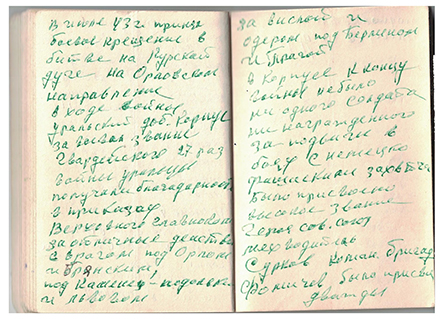 В июле 43 г. принял
боевое крещение в
битве на Курской
дуге на Орловском
направлении
в ходе войны
уральский доб. корпус
завоевал звание
Гвардейского 27 раз
войны уральцы
получали благодарность
в приказах
Верховного Главноком
за отличные действия
с врагом под Орлом
и Брянским,
под Каменец-подольск
и львовом
за вислой и
одером под Берлином
и Прагой
в корпусе к концу
войны не было
ни одного солдата
ни награжденного
за подвиги в
бою с немецко
фашискими захватч
было присвоено
высокое звание
Героя сов. союз
мех водитель
Сурков коман. бригад
Фомичев было присво
дважды